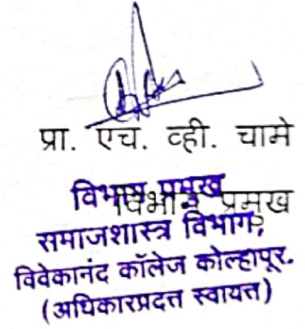 प्रा. एच. व्ही. चामे
विभाग प्रमुख
विभाग प्रमुख
समाजशास्त्र विभाग,
विवेकानंद कॉलेज कोल्हापूर.
(अधिकारप्रदत्त स्वायत्त)